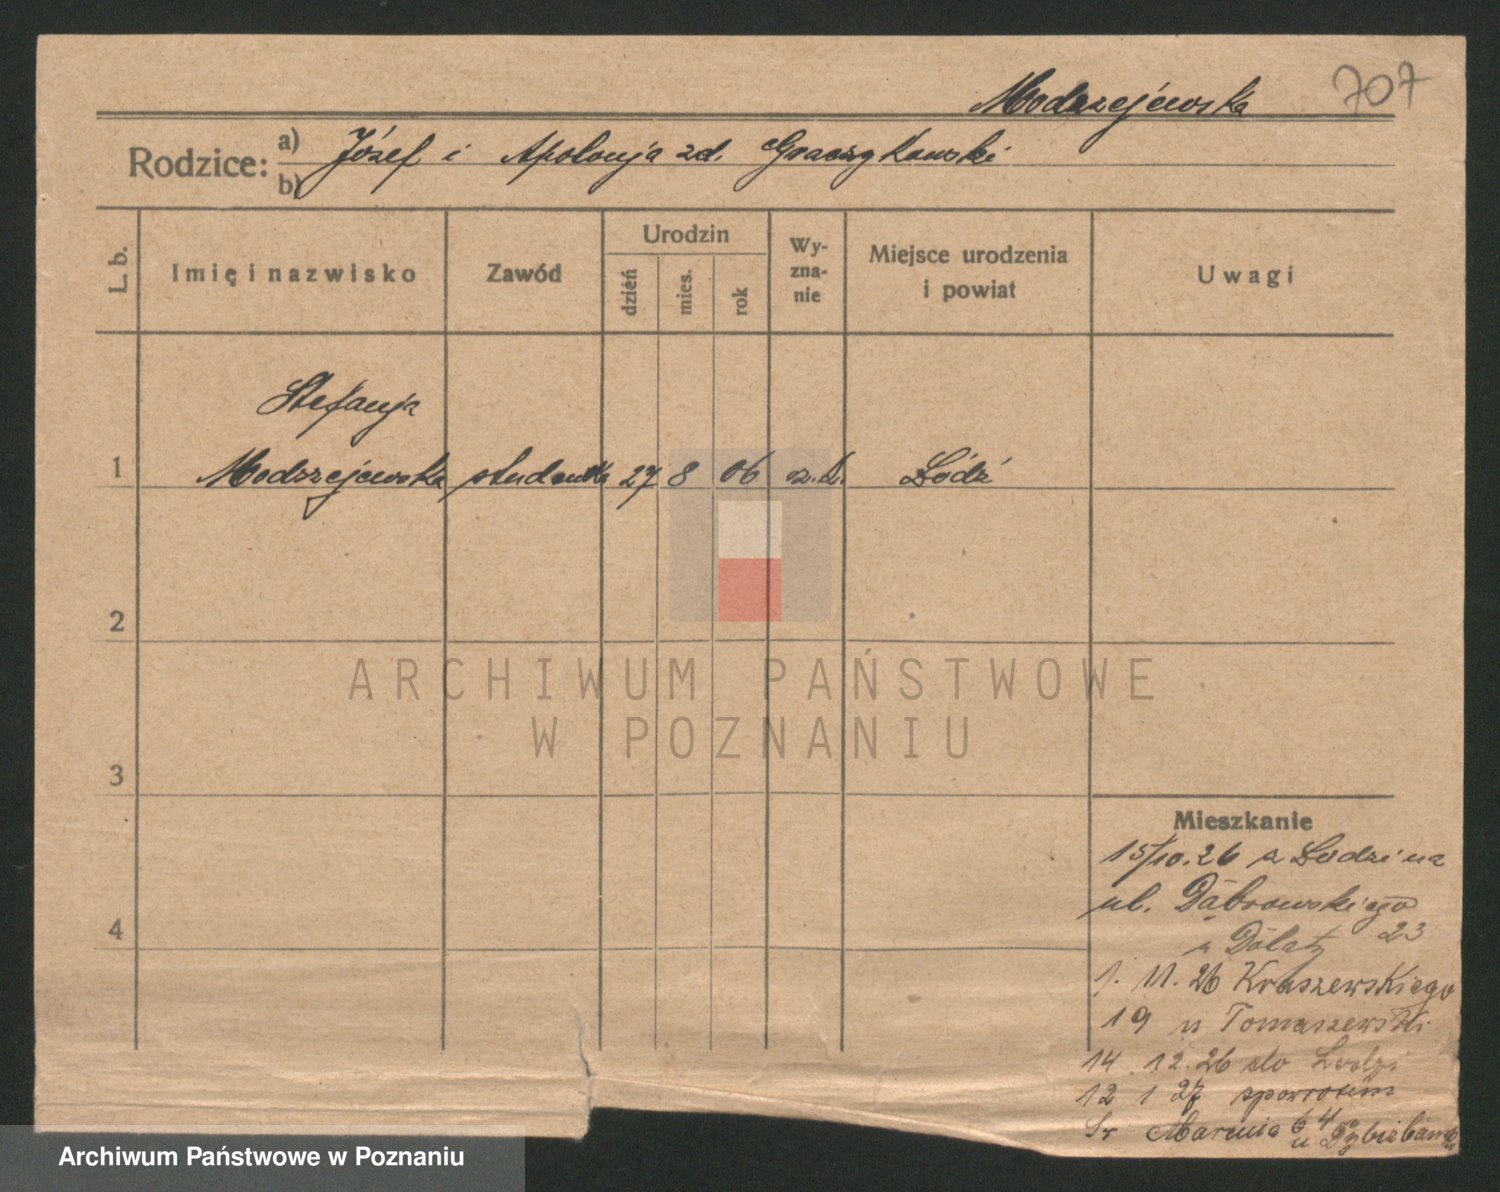 Modrzejewska 707
Rodzice: a) Józef i Apolonja zd. Graczykowski
b)
L. b. Imię i nazwisko Zawód Urodzin dzień mies. rok Wy-zna-nie Miejsce urodzenia i powiat Uwagi
Stefanja
1 Modrzejewska studentka 27 8 06 rz.k. Łódź
2
ARCHIWUM PAŃSTWOWE
W POZNANIU
3
Mieszkanie
15/10.26 z Łodzi na
ul. Dąbrowskiego
4
23
u Dolaty
1. 11. 26 Kraszewskiego
19 u Tomaszewski
14 12.26 do Łodzi
12 1 27 spowrotem
Św Marcina 64
u
Archiwum Państwowe w Poznaniu